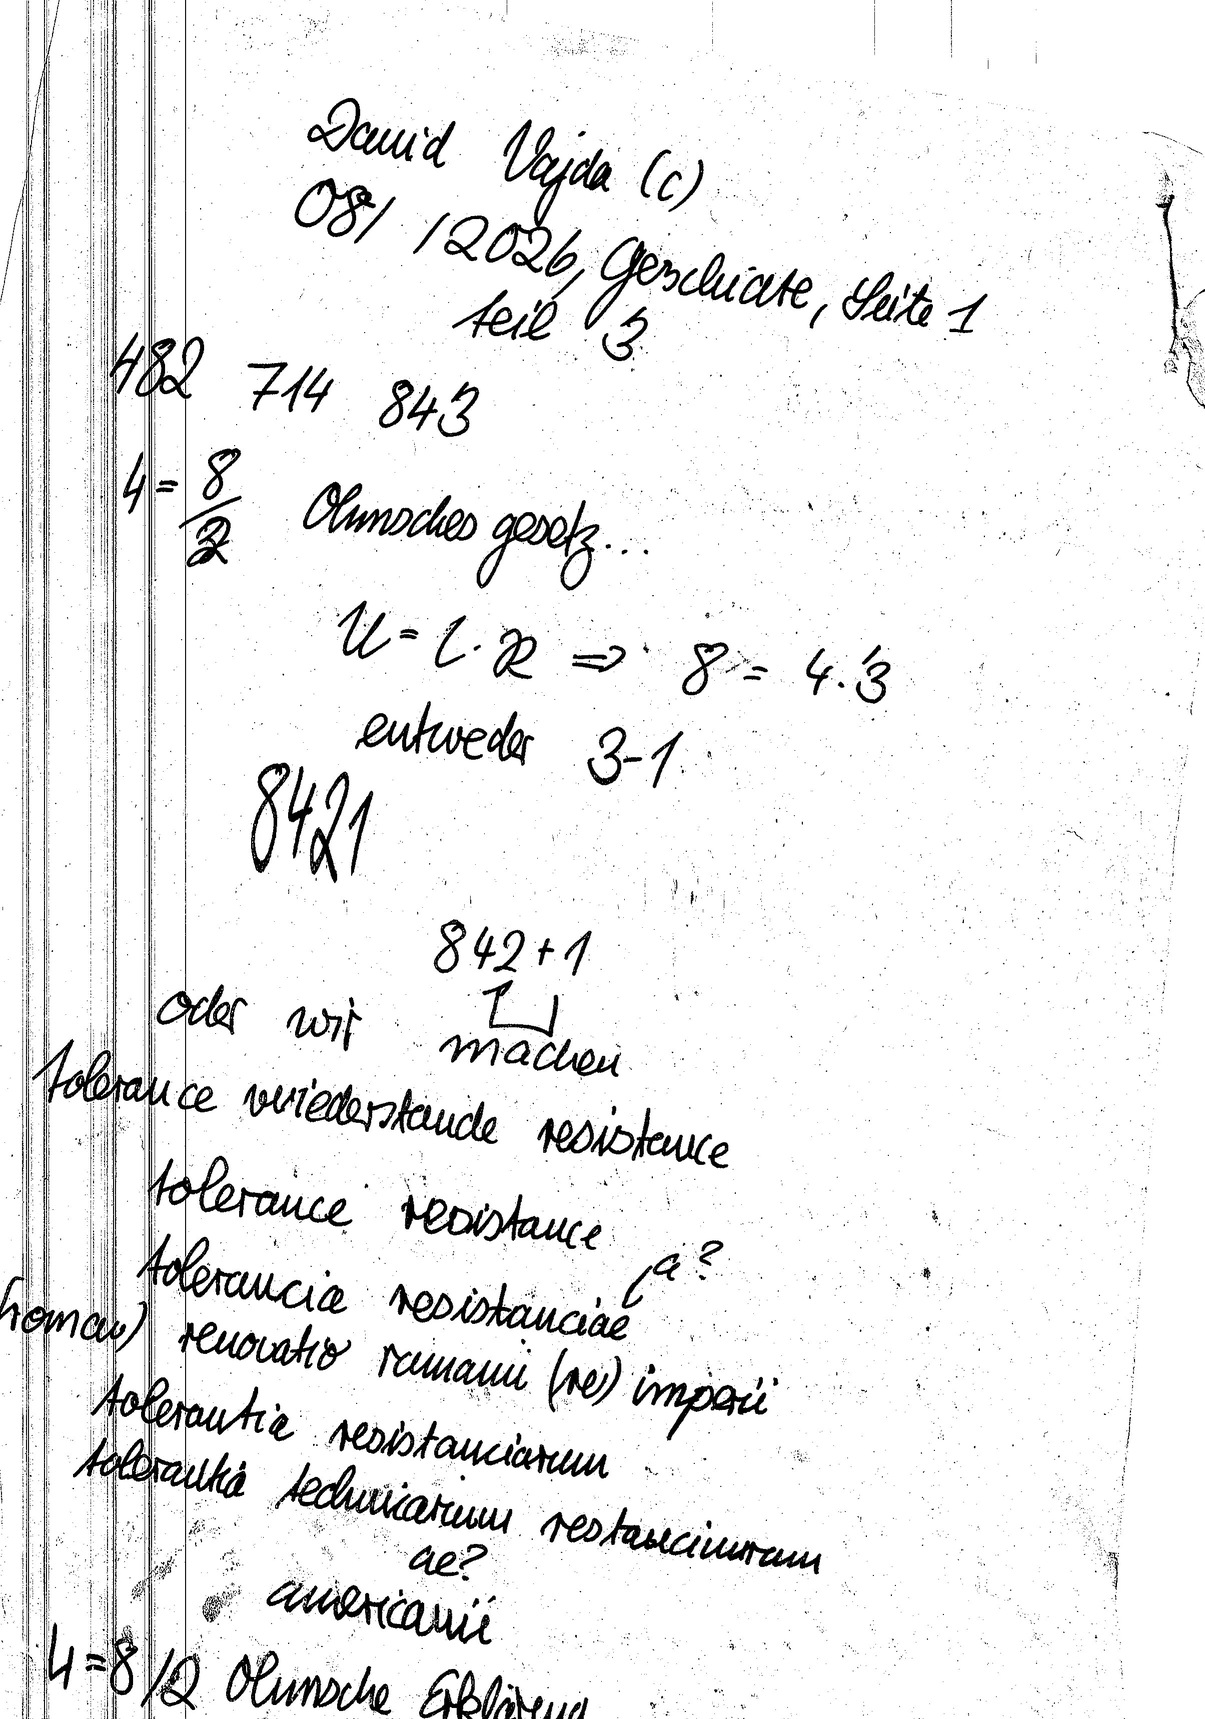 David Vajda (c)
08/ /2026, Geschichte, Seite 1
teil 3
482 714 843
4 = 8/2 Ohmsches gesetz...
U = I · R => 8 = 4 · 3
entweder 3-1
8421
842+1
oder wir machen
tolerance wriederstande resistance
tolerance resistance
a?
tolerancia resistanciae
(roman) renovatio rumanii (re) imperii
tolerantia resistanciarum
tolerantia technicarium
ae?
americanii
4=8/2 Ohmsche Erklärung